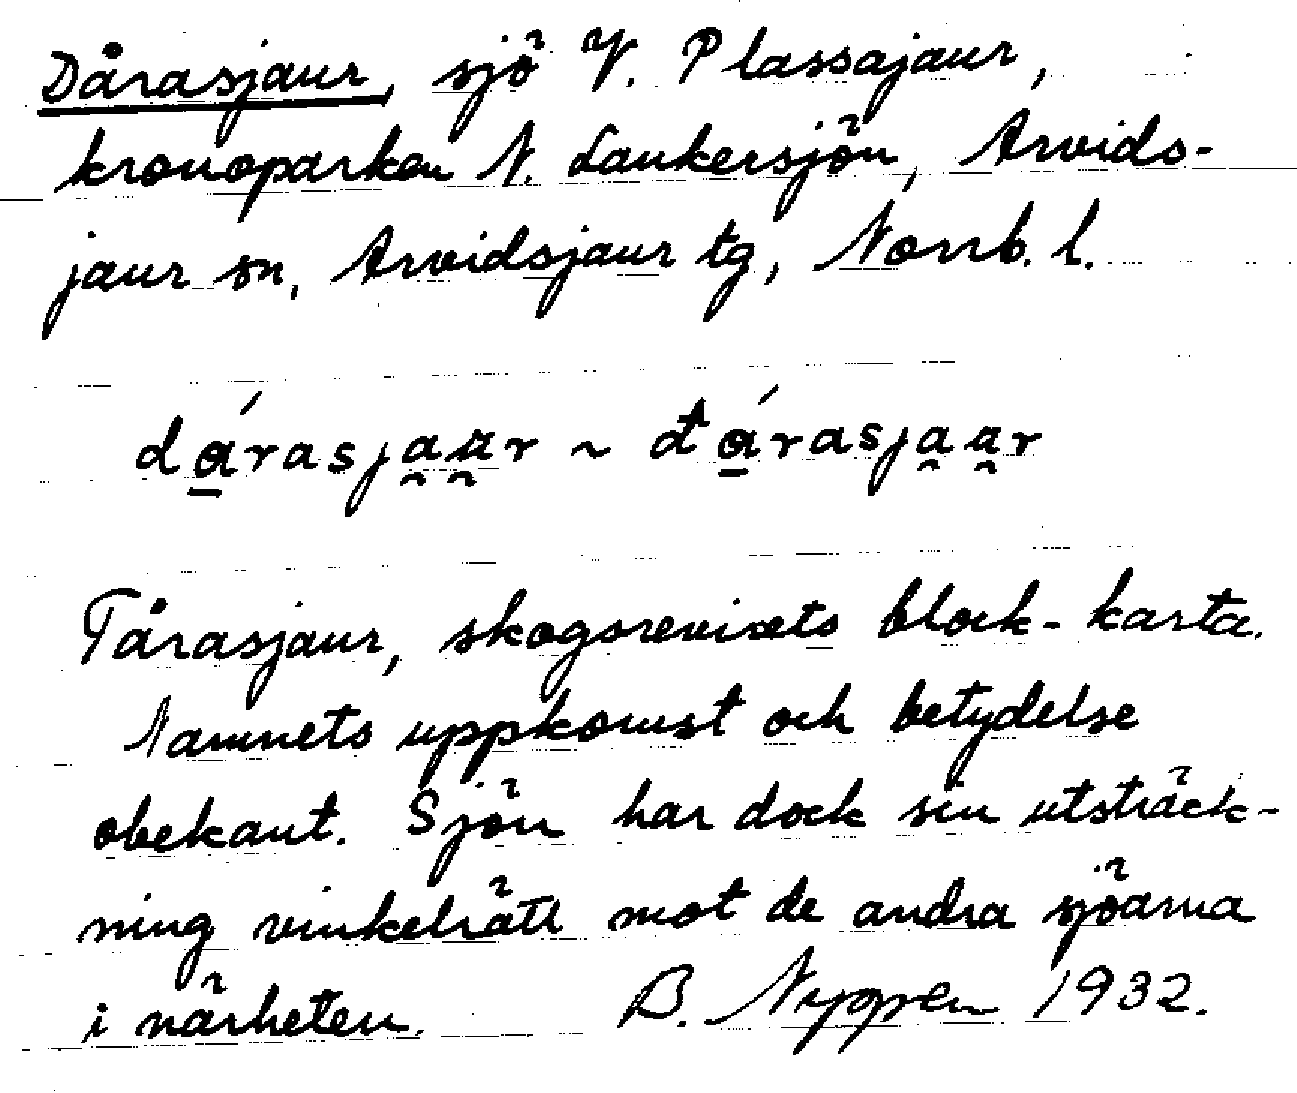 Dårasjaur, sjö V. Plassajaur,
kronoparken N. Laukersjön, Arvids-
jaur sn, Arvidsjaur tg, Norrb. l.
dά̲rasja̯a̯r ~ đά̲rasja̯a̯r
Tårasjaur, skogsrevirets block-karta.
Namnets uppkomst och betydelse
obekant. Sjön har dock sin utsträck-
ning vinkelrätt mot de andra sjöarna
i närheten. B. Nyppen 1932.